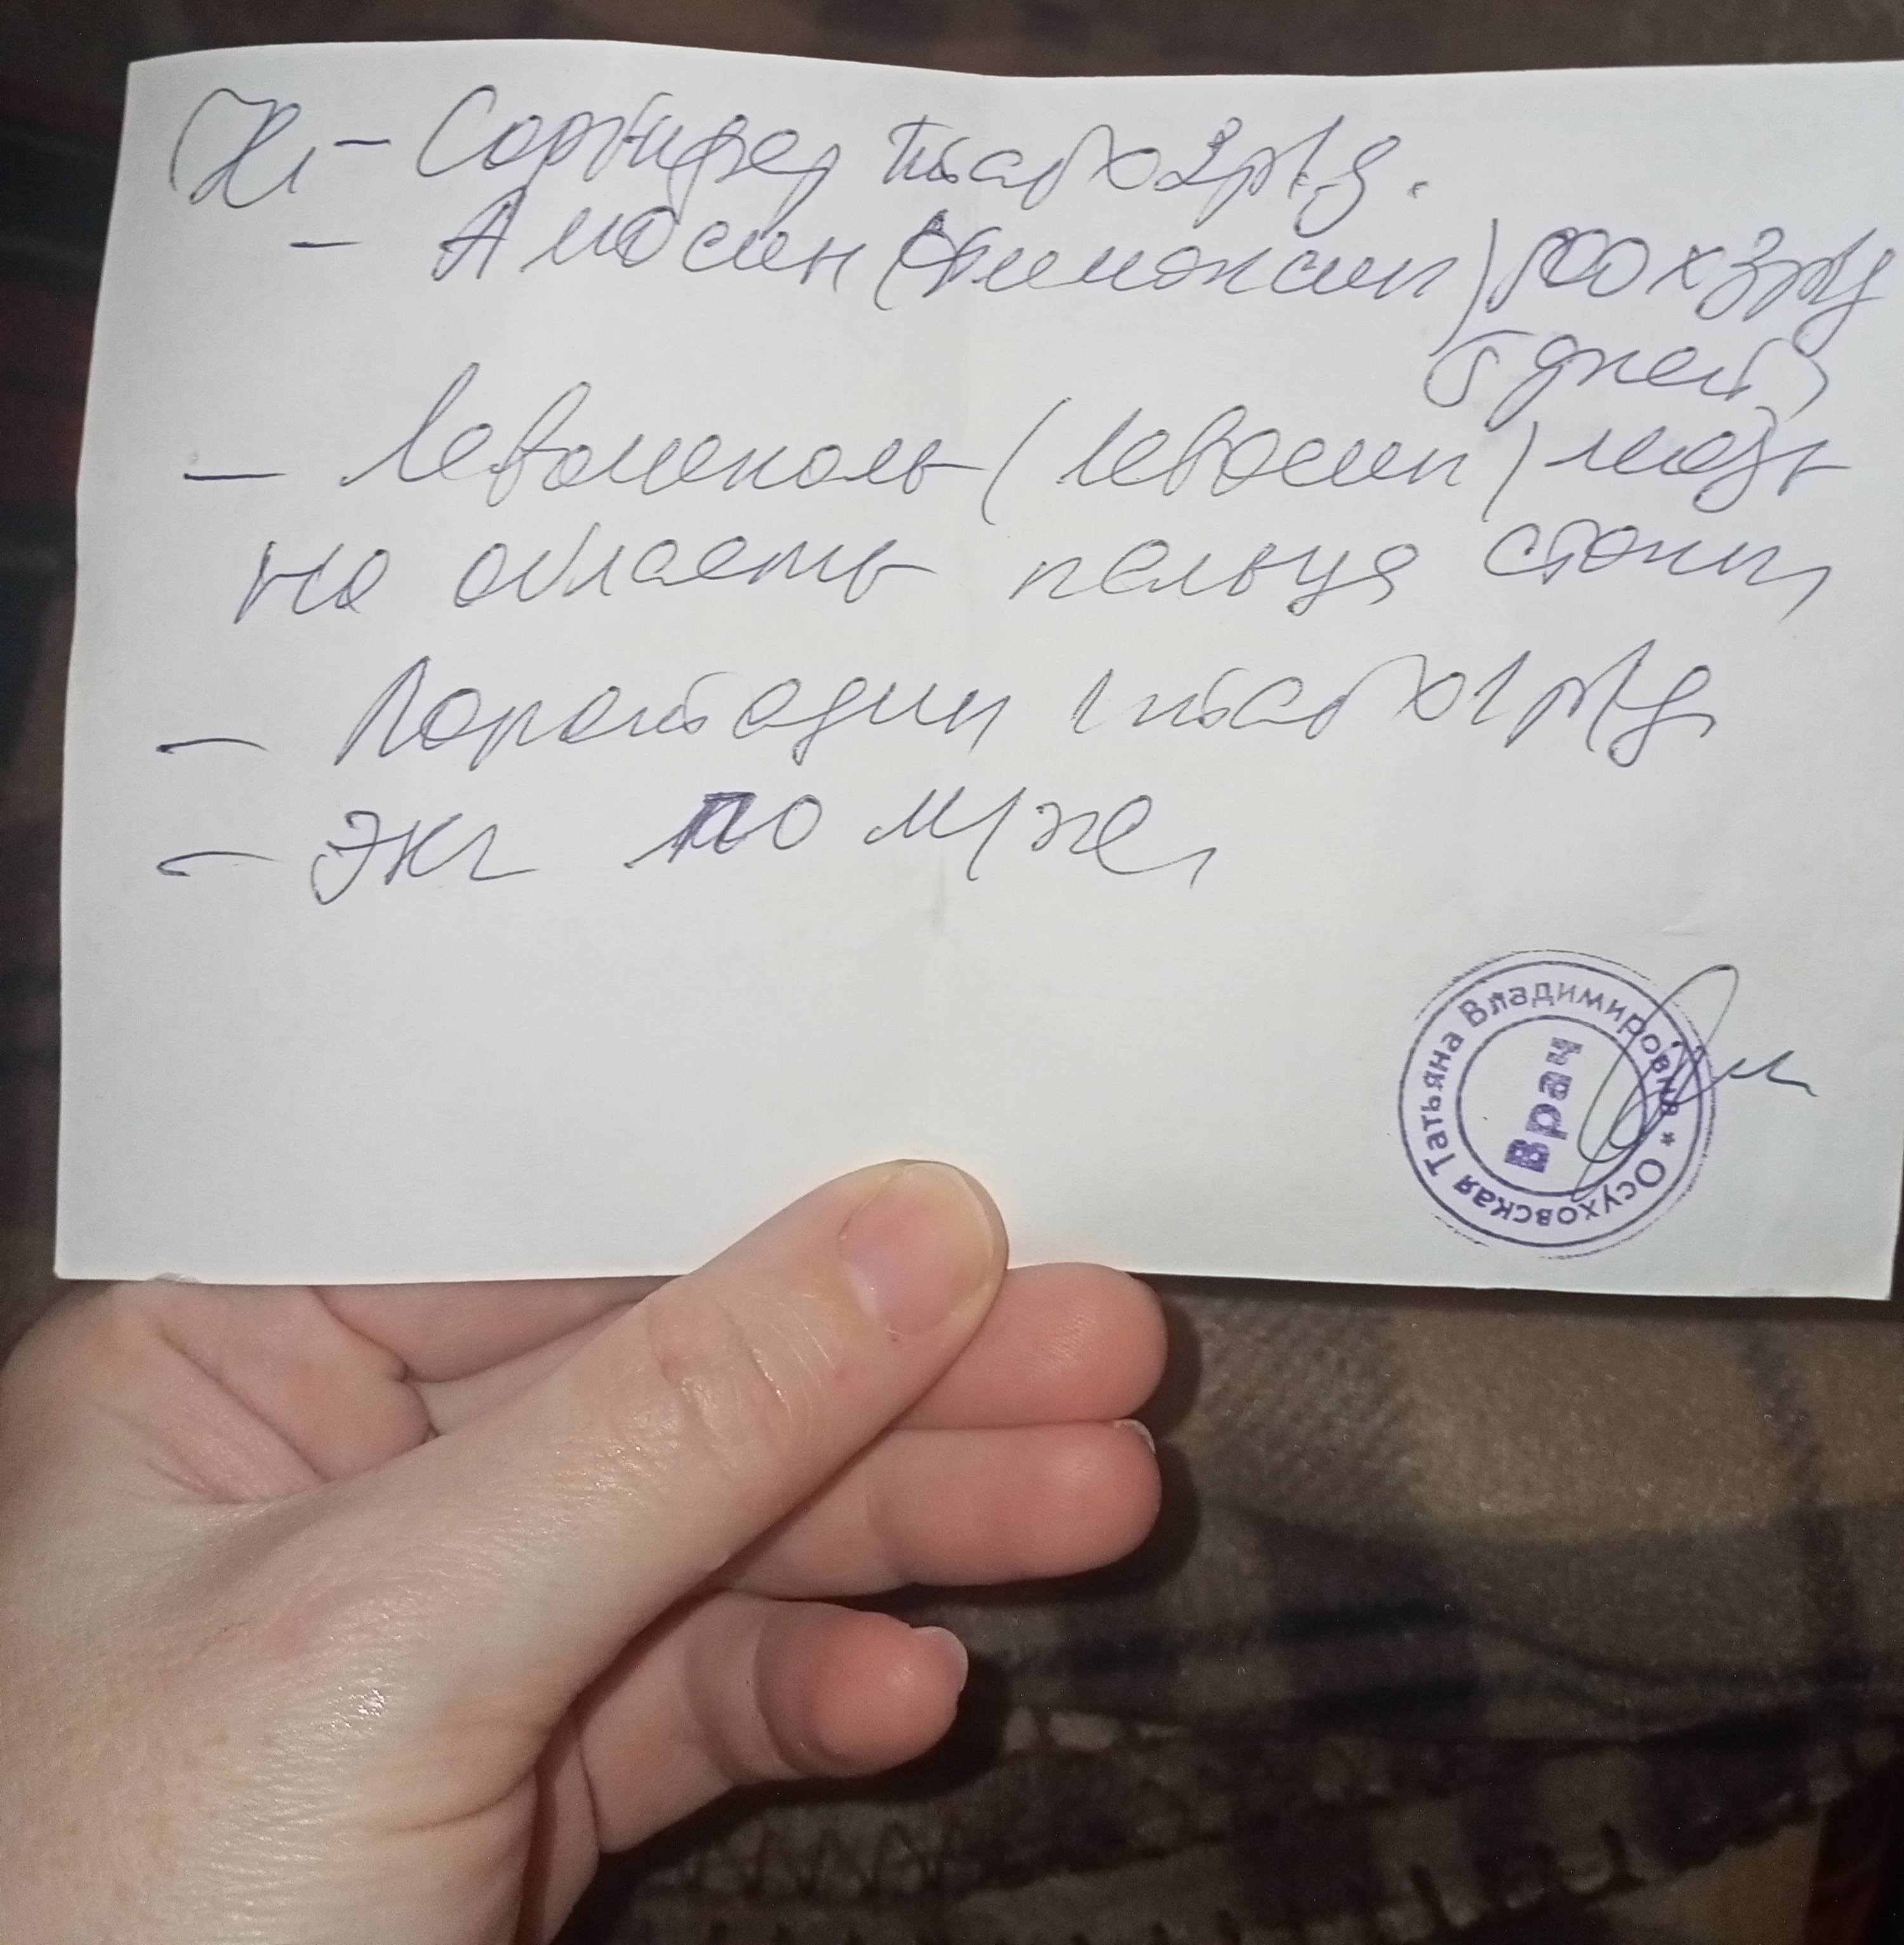 - Сорбифер 1 таб х 2 р/д.
- Амосин (Хемоксин) 500 х 3 р/д
5 дней
- Левомеколь (левосин) мазь
на область пальца стопы
- Лоратадин 1 таб х 1 р/д
- ЭКГ по м/ж
Осуховская Татьяна Владимировна *
Врач